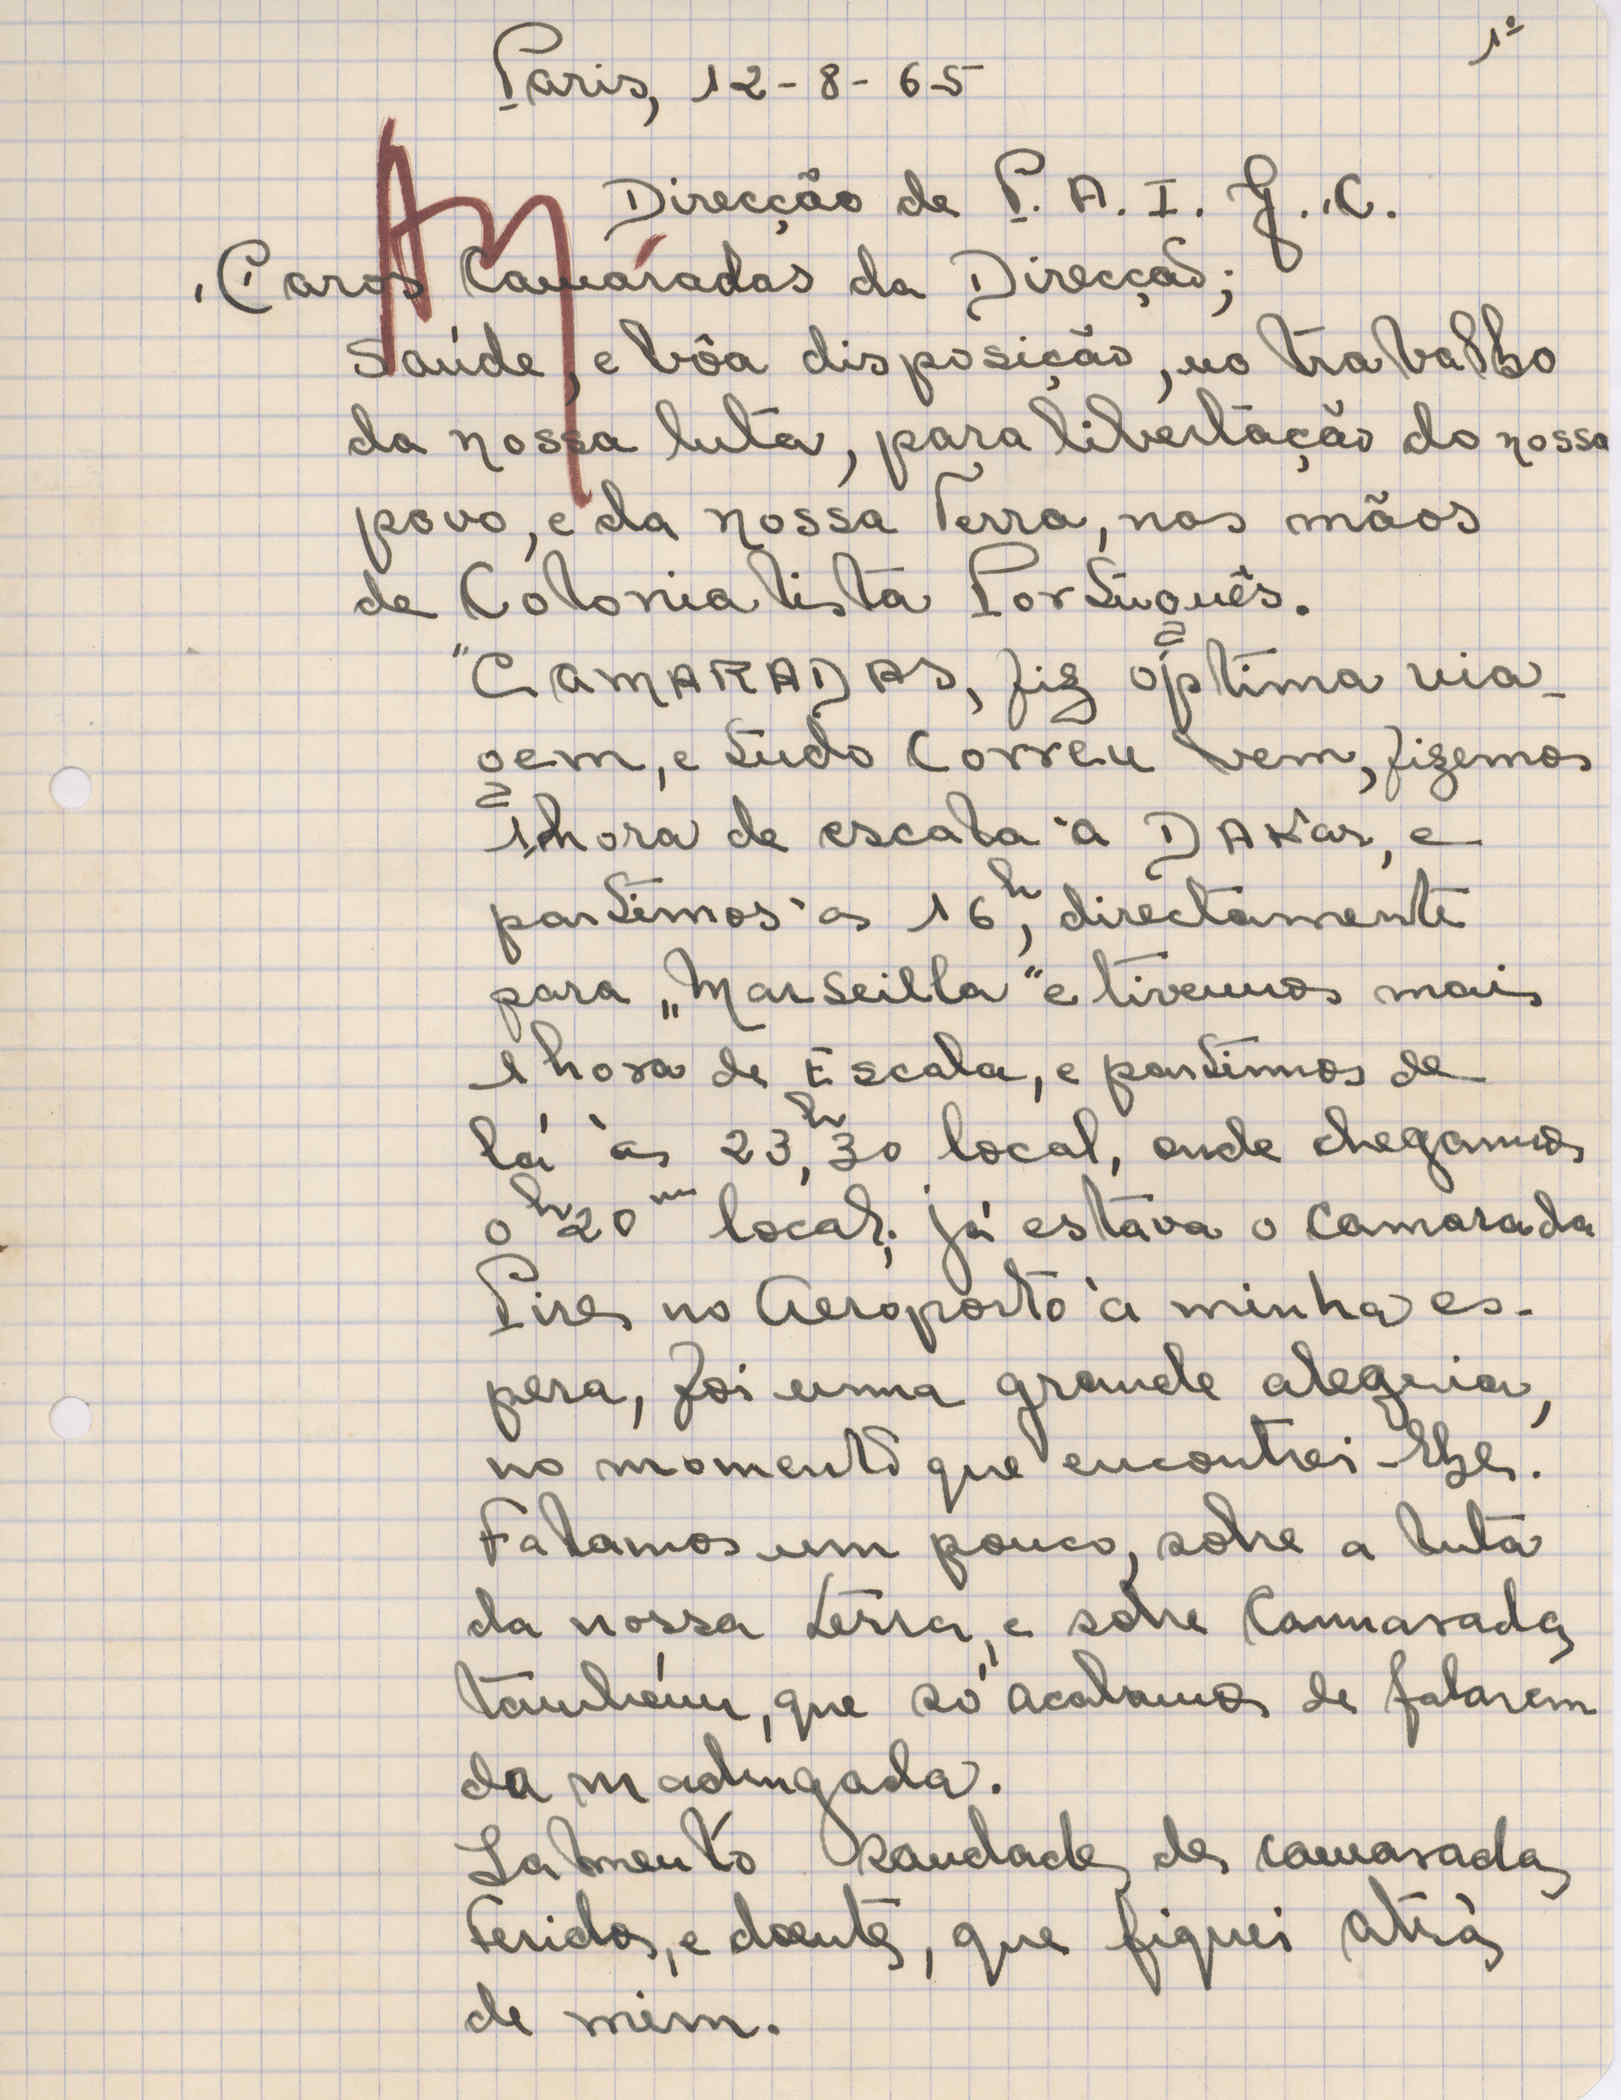 1º
Paris, 12-8-65
Direcção de P. A. I. G. C.
Caros Camáradas da Direcção;
Saúde, e bôa disposição, no trabalho
da nossa luta, para libertação do nosso
povo, e da nossa Terra, nas mãos
de Colonialista Português.
"CAMARADAS, fiz óptima via-
gem, e tudo correu bem, fizemos
1 hora de escala à DAKar, e
partimos às 16h, directamente
para „Marseilla" e tivemos mais
1 hora de Escala, e partimos de
lá às 23,h30 local, onde chegamos
0h20m local; já estava o camarada
Pires no Aeroporto à minha es-
pera, foi uma grande alegria,
no momento que encontrei-lhe.
Falamos um pouco, sobre a luta
da nossa terra, e sobre Camaradas
também, que só acabamos de falarem
da madrugada.
Lamento saudades des camaradas
Feridos, e doentes, que fiquei atrás
de mim.